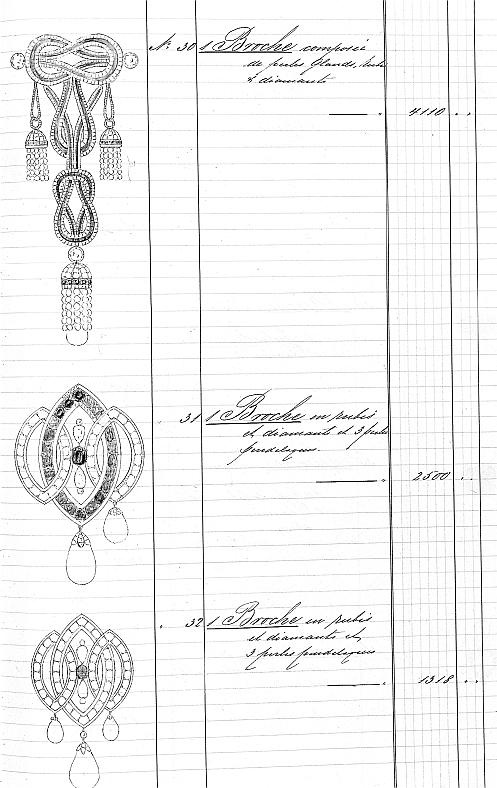 Nº 30 1 Broche composée
de perles Glands, rubis
& diamants
4110 " "
31 1 Broche en rubis
et diamants et 3 perles
pendeloques.
2500 " "
" 32 1 Broche en rubis
et diamants et
3 perles pendeloques
1318 " "